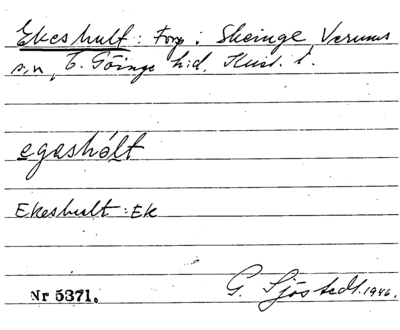 Ekeshult: Torp: Skeinge, Verums
s:n, Ö. Göinge h:d. Krist. l.
egeshólt
Ekeshult: Ek
Nr 5371. G. Sjöstedt. 1946.